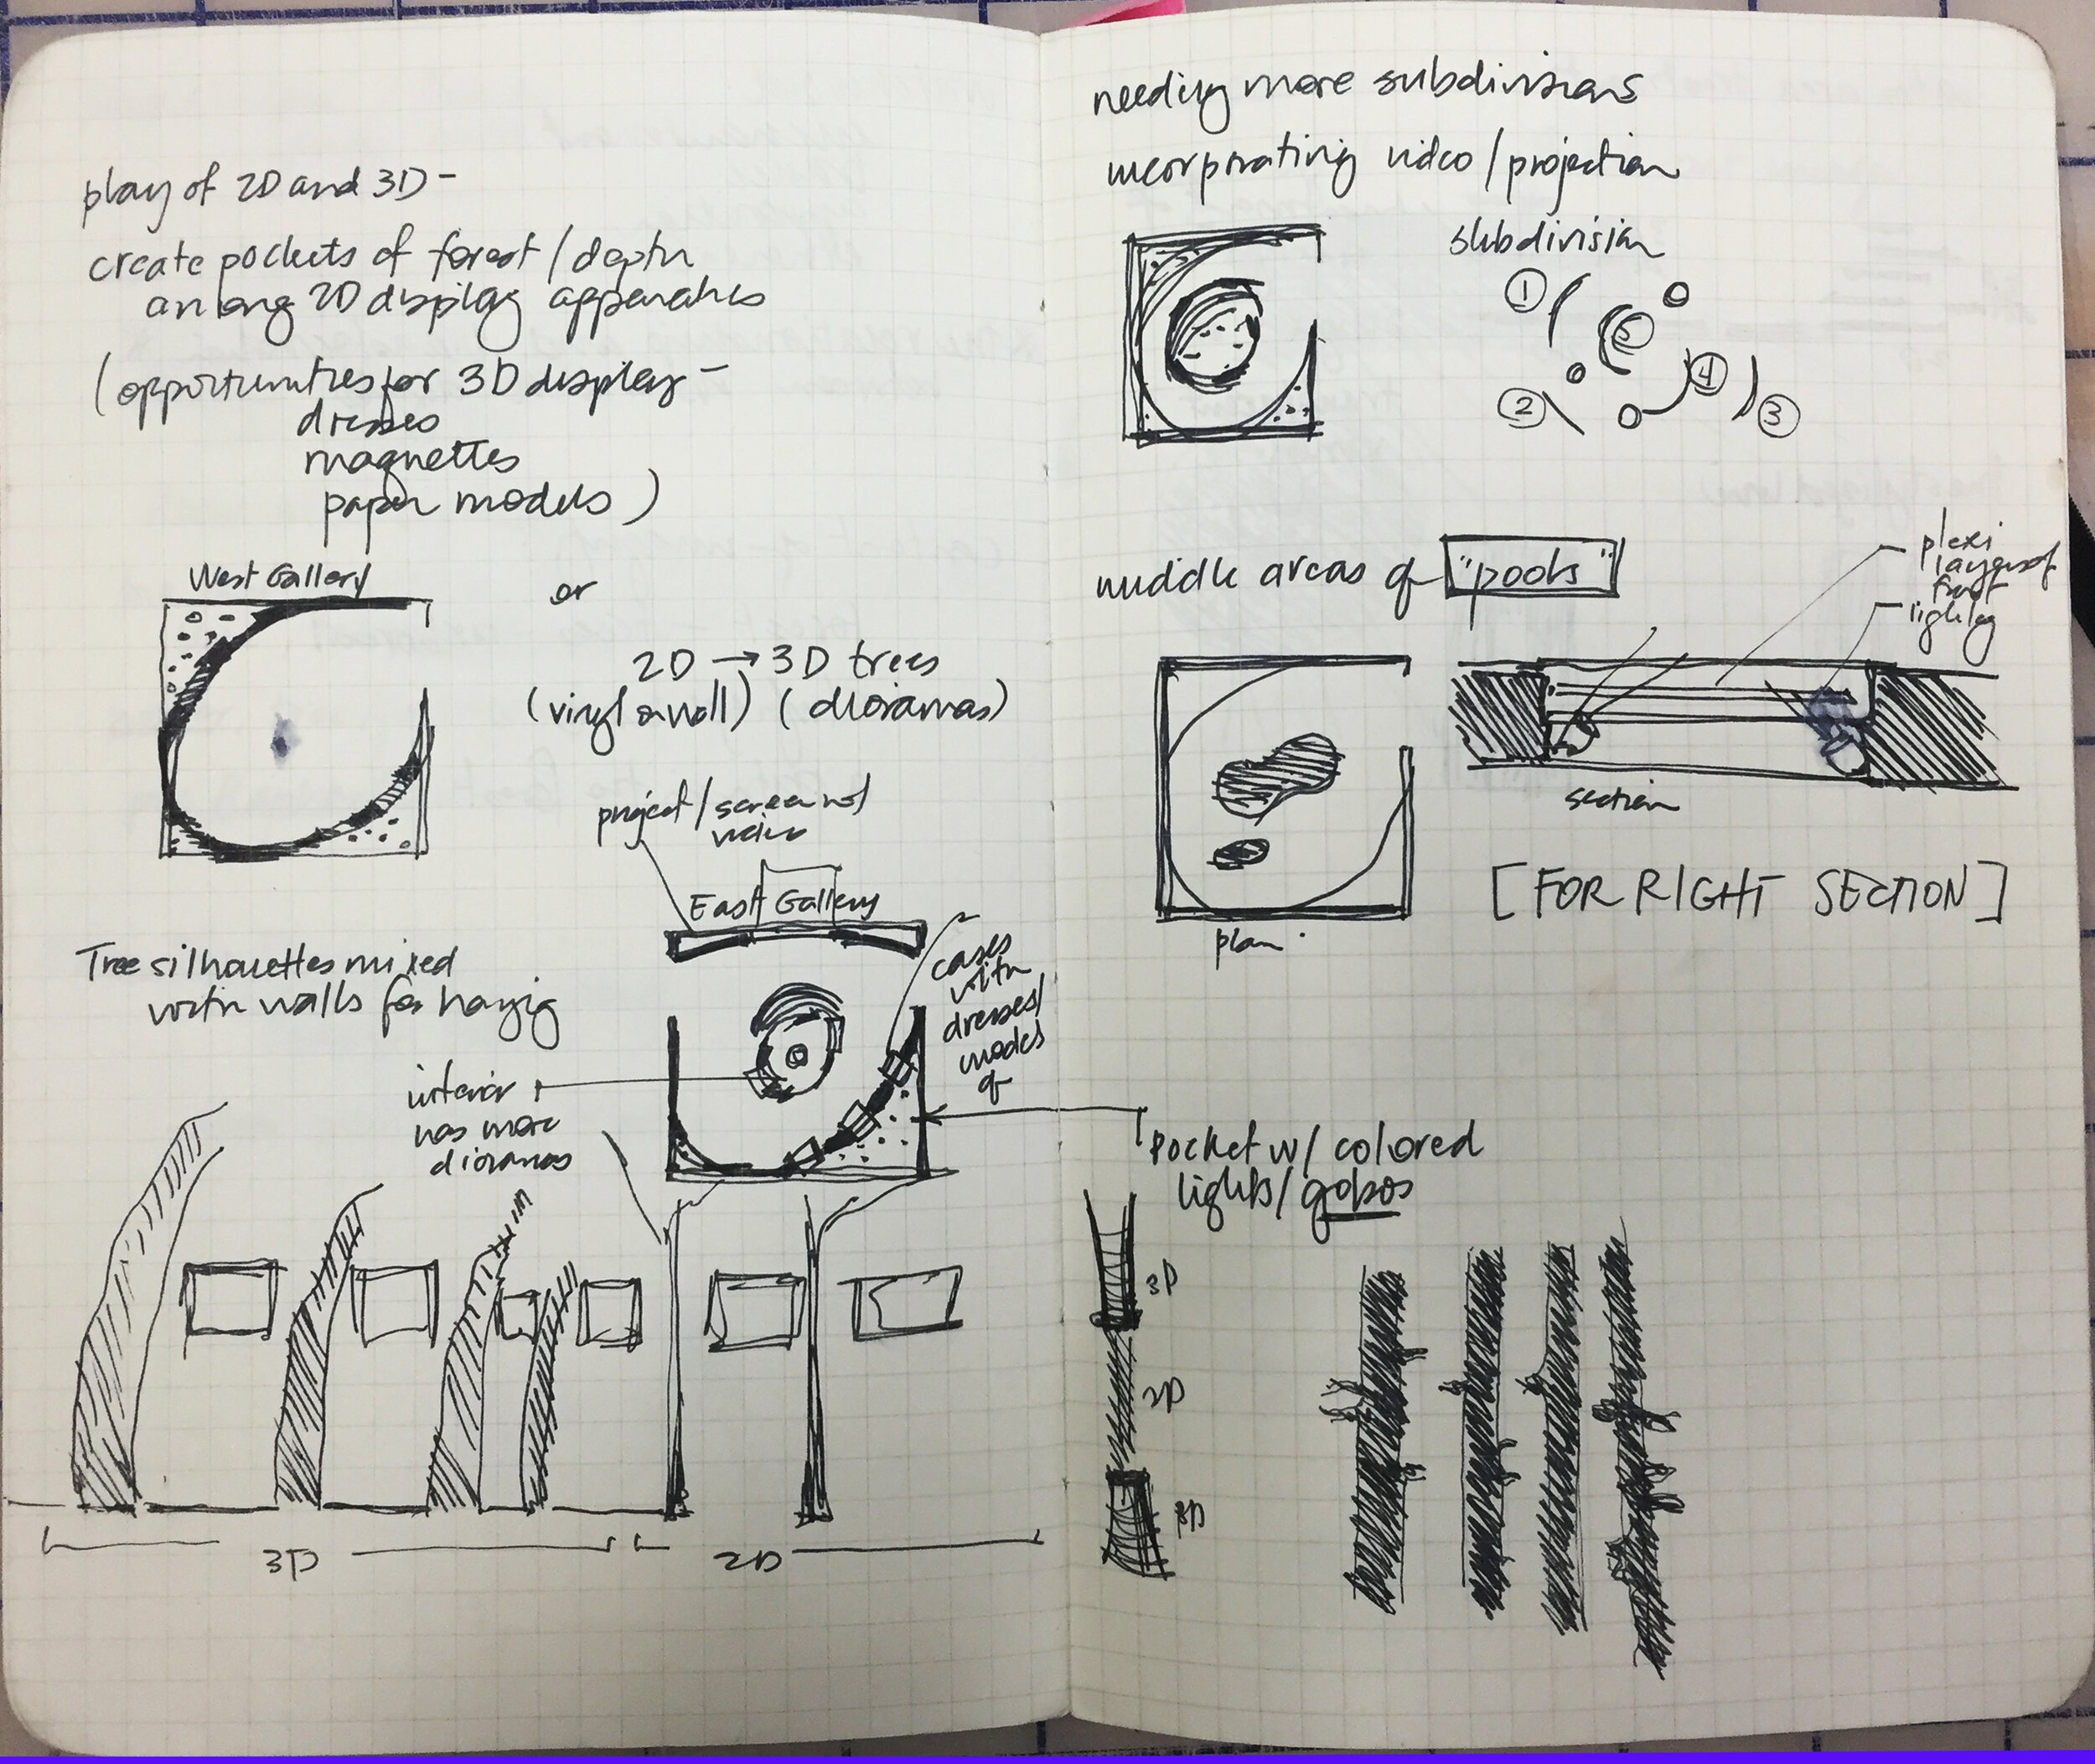 play of 2D and 3D -
create pockets of forest / depth
among 2D display apparatus
(opportunities for 3D display -
dresses
maquettes
paper models)
West Gallery
or
2D → 3D trees
(vinyl on wall) (dioramas)
project / screen
East Gallery
cases
with
dresses/
models
of
Tree silhouettes mixed
with walls for hanging
interior
has more
dioramas
3D
2D
needing more subdivisions
incorporating video / projection
subdivision
1
2
3
4
5
middle areas of "pools"
plexi
layers of
lighting
section
plan
[FOR RIGHT SECTION]
Pocket w/ colored
lights / gobos
3D
2D
3D